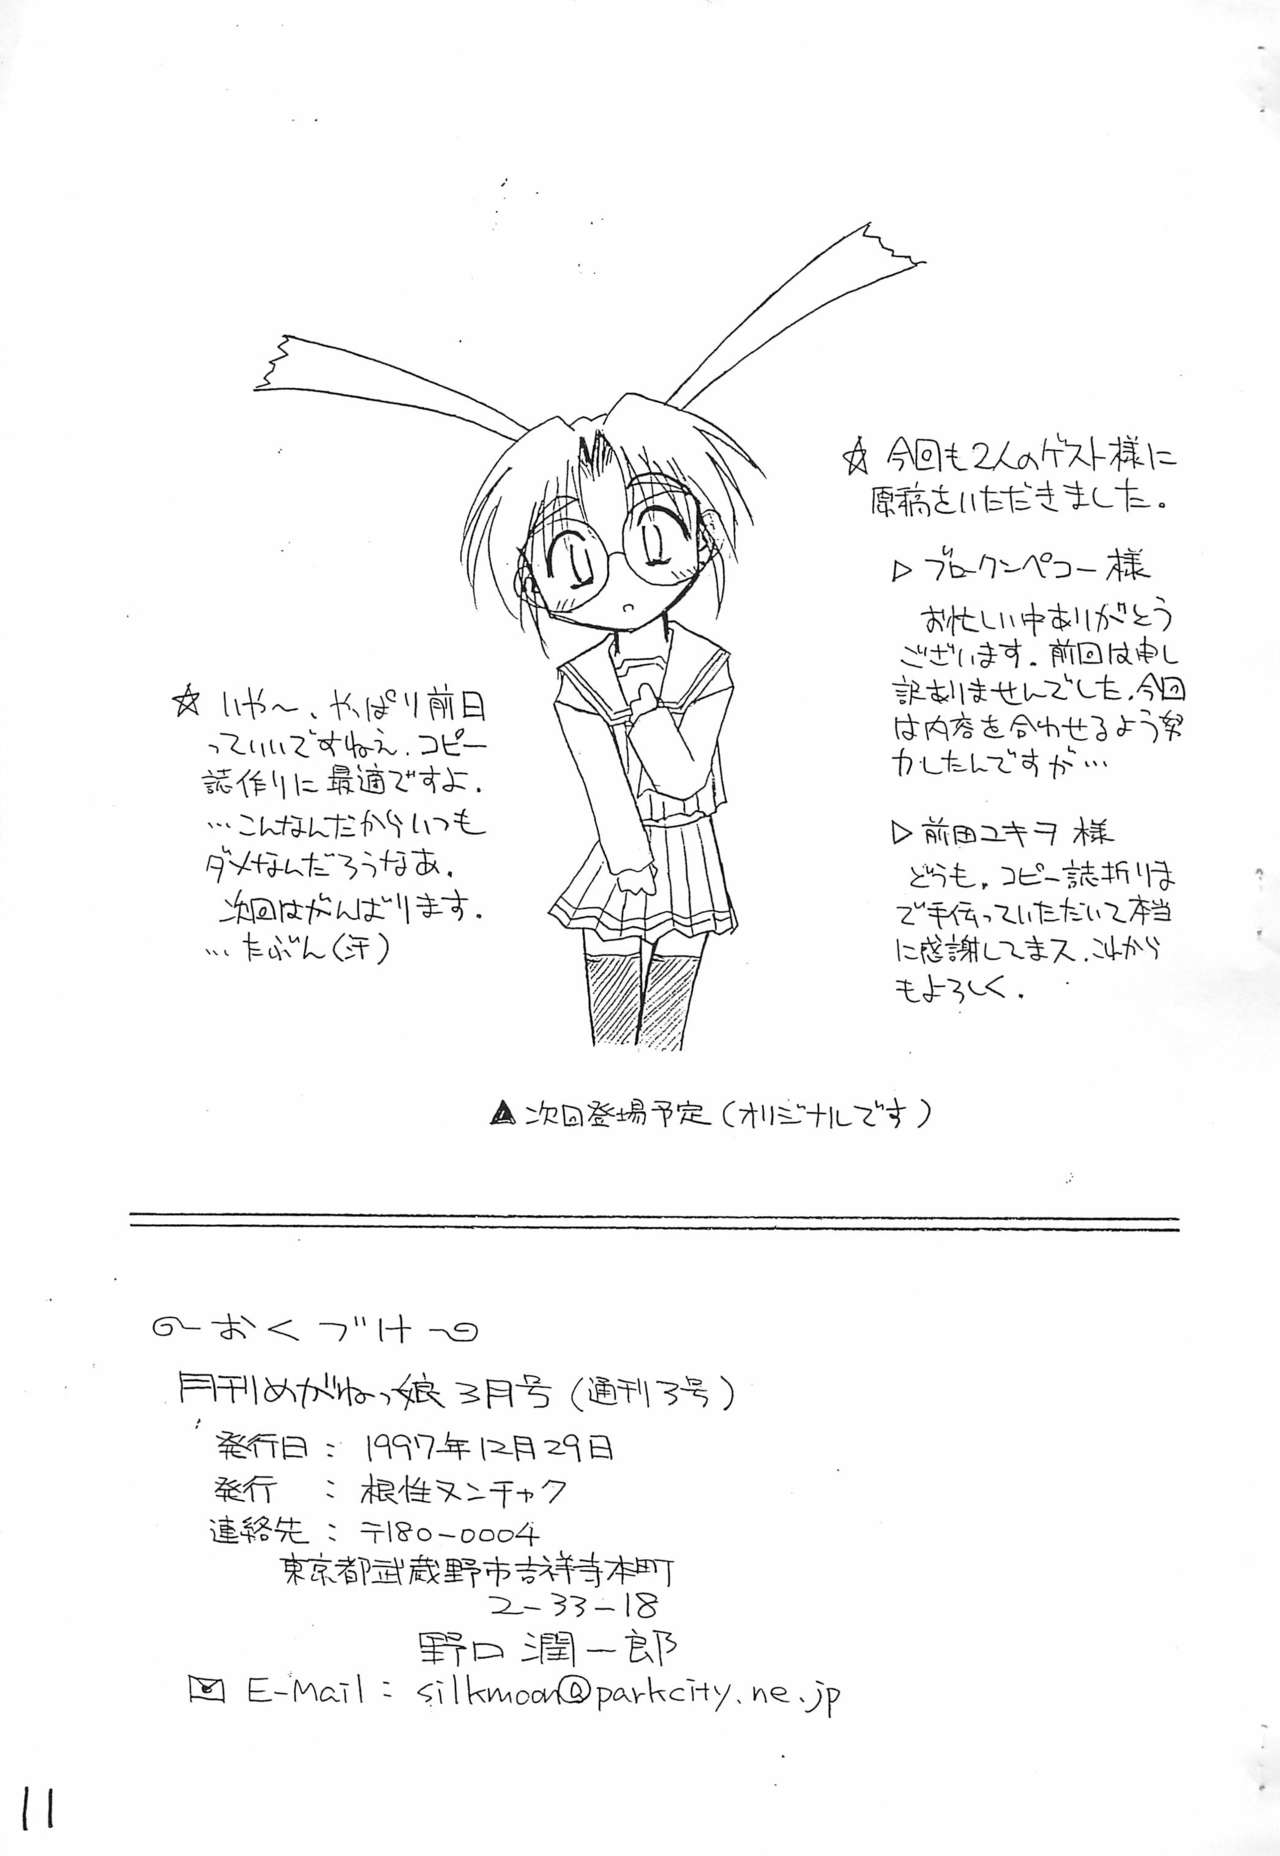 ☆ 今回も2人のゲスト様に
原稿をいただきました。
▷ ブロークンペコー様
お忙しい中ありがとう
ございます。前回は申し
訳ありませんでした。今回
は内容を合わせるよう努
力したんですが…
▷ 前田ユキヲ様
どうも。コピー誌折りま
で手伝っていただいて本当
に感謝してまス。これから
もよろしく.
☆ いや～、やっぱり前日
っていいですねえ.コピー
誌作りに最適ですよ.
…こんなんだからいつも
ダメなんだろうなあ.
次回はがんばります.
…たぶん(汗)
▲次回登場予定(オリジナルです)
おくづけ
月刊めがねっ娘3月号(通刊3号)
発行日:1997年12月29日
発行 :根性ヌンチャク
連絡先:〒180-0004
東京都武蔵野市吉祥寺本町
2-33-18
野口潤一郎
E-Mail: silkmoon@parkcity.ne.jp
11